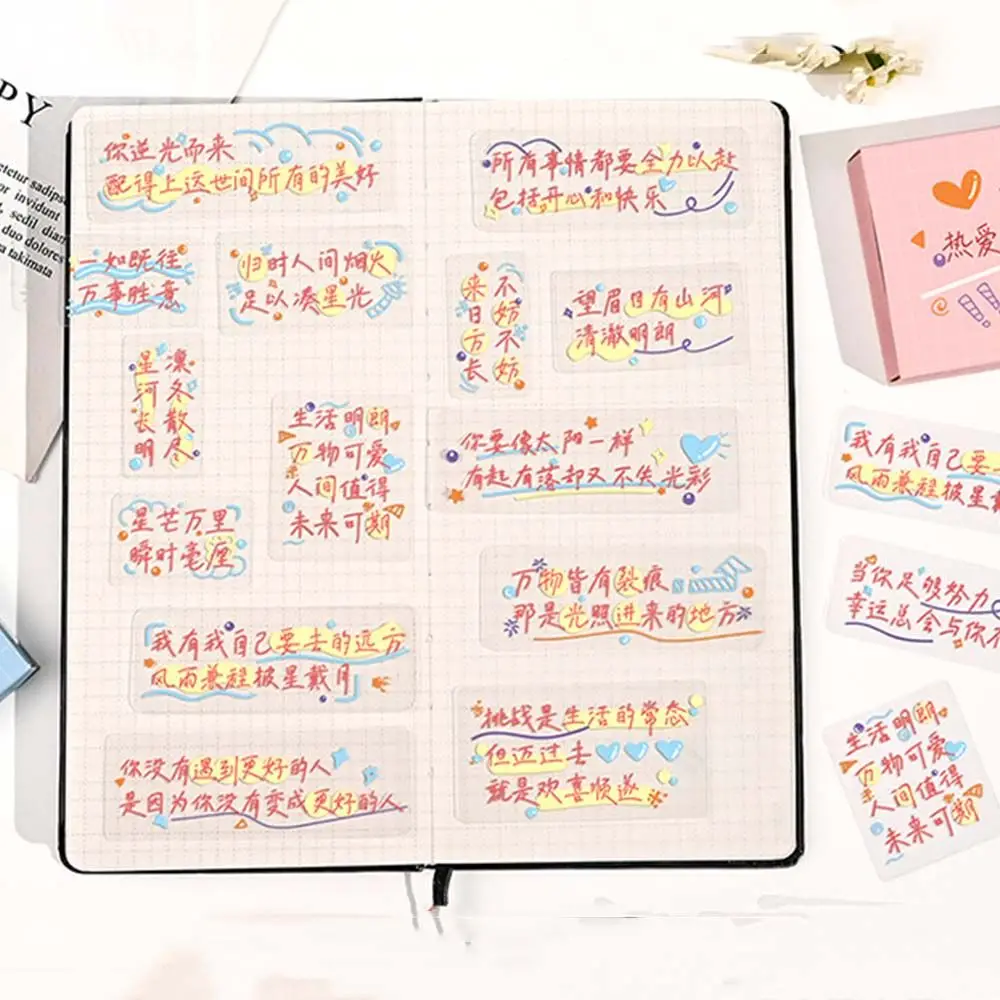 PY
tetur sadips
or invidunt
sedil diam
duo dolores
takimata
你逆光而来
配得上这世间所有的美好
一如既往
万事胜意
归时人间烟火
足以凑星光
凛冬散尽
星河长明
生活明朗
万物可爱
人间值得
未来可期
星芒万里
瞬时毫厘
我有我自己要去的远方
风雨兼程披星戴月
你没有遇到更好的人
是因为你没有变成更好的人
所有事情都要全力以赴
包括开心和快乐
不妨不妨
来日方长
望眉目有山河
清澈明朗
你要像太阳一样
有起有落却又不失光彩
万物皆有裂痕
那是光照进来的地方
挑战是生活的常态
但迈过去
就是欢喜顺遂
热爱
我有我自己要
风雨兼程披星戴
当你足够努力
幸运总会与你不
生活明朗
万物可爱
人间值得
未来可期